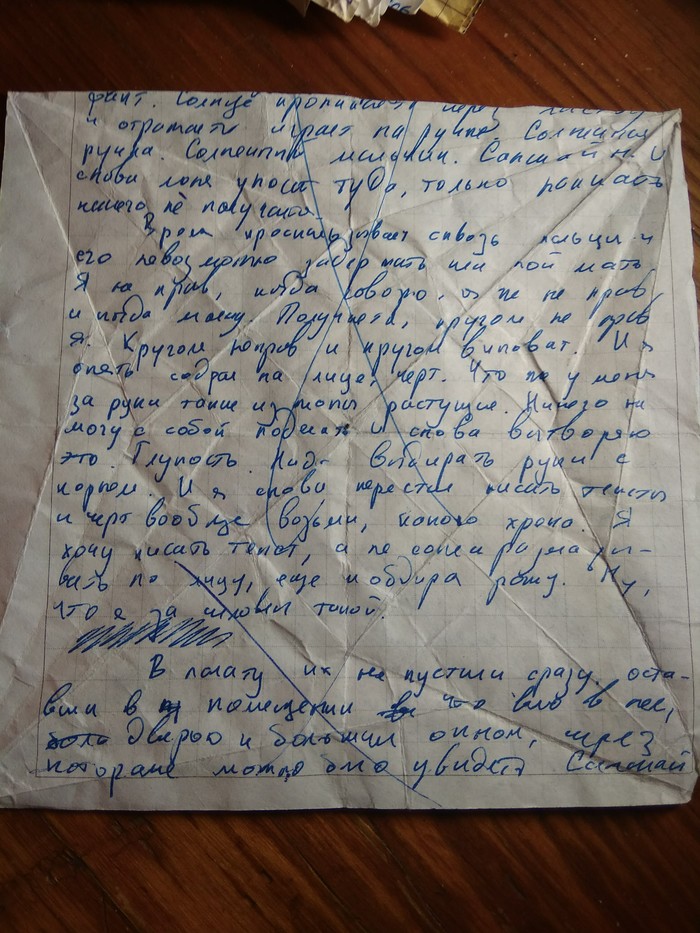 факт. Солнце проникает через
и отражает играет на рупке Солнечная
рупка. Солнечный малыш.
снова уносит туда, только
ничего не получает.
Время проскальзывает сквозь пальцы и
его невозможно задержать
Я не прав, когда говорю, я же не прав
и когда молчу. Получается, кругом не прав
я. Кругом неправ и кругом виноват. И я
опять содрал на лице, черт. Что ж у меня
за руки такие из жопы растущие. Ничего не
могу с собой поделать и снова вытворяю
это. Глупость. Надо выдирать руки с
корнем. И я снова перестал писать тексты
и черт вообще возьми, какого хрена. Я
хочу писать текст, а не сопли размазы-
вать по лицу, еще и обдирая рожу. Ну,
что я за человек такой.
В палату их не пустили сразу, оста-
вили в помещении что было в нее,
дверью и большим окном, через
которое можно было увидеть